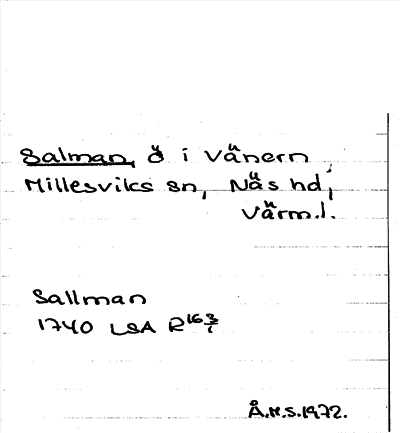 Salman, ö i Vänern
Millesviks sn, Näs hd,
Värm.l.
Sallman
1740 LSA R16 3/1
Å.H.S. 1972.